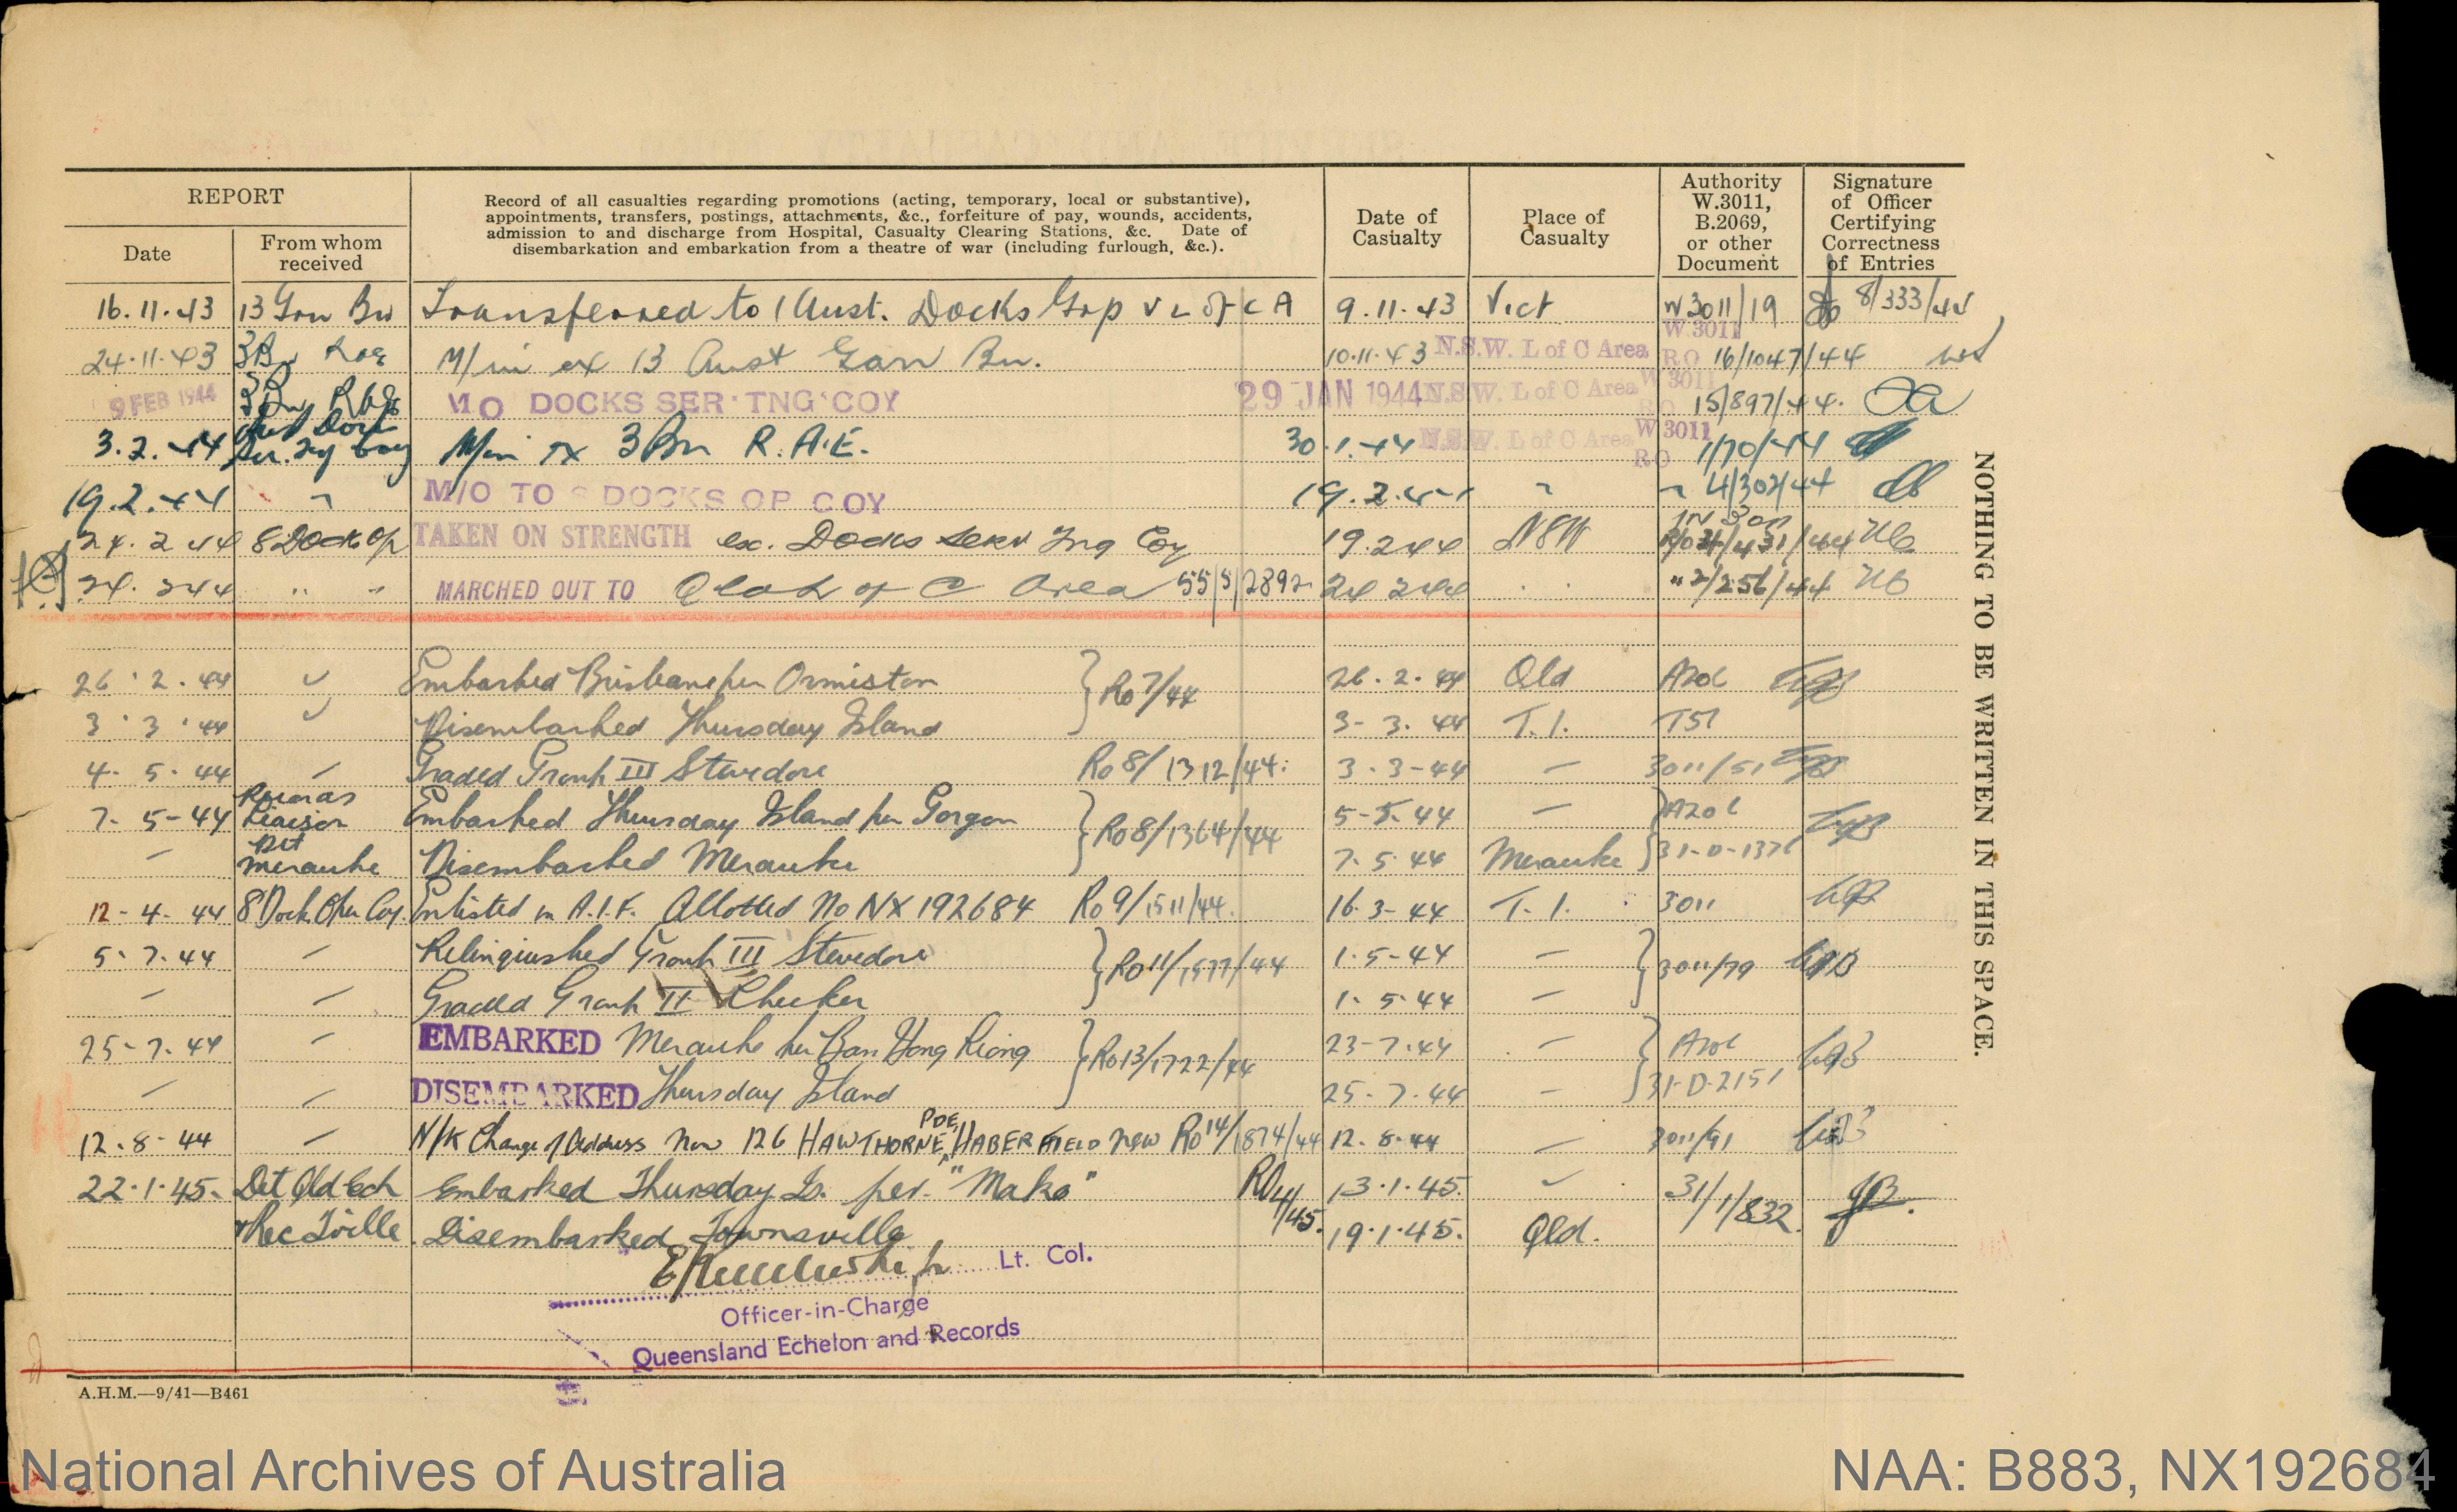 REPORT
Date
From whom received
Record of all casualties regarding promotions (acting, temporary, local or substantive),
appointments, transfers, postings, attachments, &c., forfeiture of pay, wounds, accidents,
admission to and discharge from Hospital, Casualty Clearing Stations, &c. Date of
disembarkation and embarkation from a theatre of war (including furlough, &c.).
Date of Casualty
Place of Casualty
Authority W.3011, B.2069, or other Document
Signature of Officer Certifying Correctness of Entries
16.11.43 13 Gar Bn Transferred to 1 Aust. Docks Grp V L of C A 9.11.43 Vict W3011/19 8/333/44
24.11.43 3Bn RAE M/in ex 13 Aust Garr Bn. 10.11.43 N.S.W. L of C Area W.3011 RO 16/1047/44
9 FEB 1944 3Bn RAE M O DOCKS SER TNG COY 29 JAN 1944 N.S.W. L of C Area W 3011 RO 15/897/44.
3.2.44 Aust Dock Ser. Tng Coy M/in ex 3Bn R.A.E. 30.1.44 N.S.W. L of C Area W 3011 RO 1/70/44
19.2.44 " M/O TO 8 DOCKS OP COY 19.2.44 " " 4/302/44
24.2.44 8 Dock Op TAKEN ON STRENGTH ex. Docks Serv Tng Coy 19.2.44 NSW 431/44
24.2.44 " " MARCHED OUT TO Qld L of C Area 55/5/2892 24.2.44 " 2/256/44
26.2.44 Embarked Brisbane per Ormiston } Ro 7/44 26.2.44 Qld A206
3.3.44 Disembarked Thursday Island 3-3.44 T.I. T57
4.5.44 Graded Group III Stevedore Ro 8/1312/44. 3.3-44 — 3011/51
7-5-44 Liaison Det Merauke Embarked Thursday Island per Gorgon } Ro 8/1364/44 5-5.44 — } A206
— Disembarked Merauke 7.5.44 Merauke 31-D-1376
12-4-44 8 Dock Oper Coy. Enlisted in A.I.F. Allotted No NX 192684 Ro 9/1511/44. 16.3-44 T.I. 3011
5.7.44 — Relinquished Group III Stevedore } Ro 11/1577/44 1.5-44 — } 3011/79
— — Graded Group II Checker 1.5.44 —
25-7.44 — EMBARKED Merauke per Ban Hong Liong } Ro 13/1722/44 23-7.44 — } A206
— — DISEMBARKED Thursday Island 25-7.44 — 31-D-2151
12.8-44 — N/K Change of Address Now 126 HAWTHORNE PDE, HABERFIELD NSW Ro 14/1874/44 12.8-44 — 3011/91
22.1.45. Det Qld Ech Embarked Thursday Is. per "Mako" RO 4/45. 13.1.45. 31/1/832.
& Rec Tville. Disembarked Townsville 19.1.45. Qld.
Lt. Col.
Officer-in-Charge
Queensland Echelon and Records
NOTHING TO BE WRITTEN IN THIS SPACE.
A.H.M.—9/41—B461
National Archives of Australia
NAA: B883, NX192684